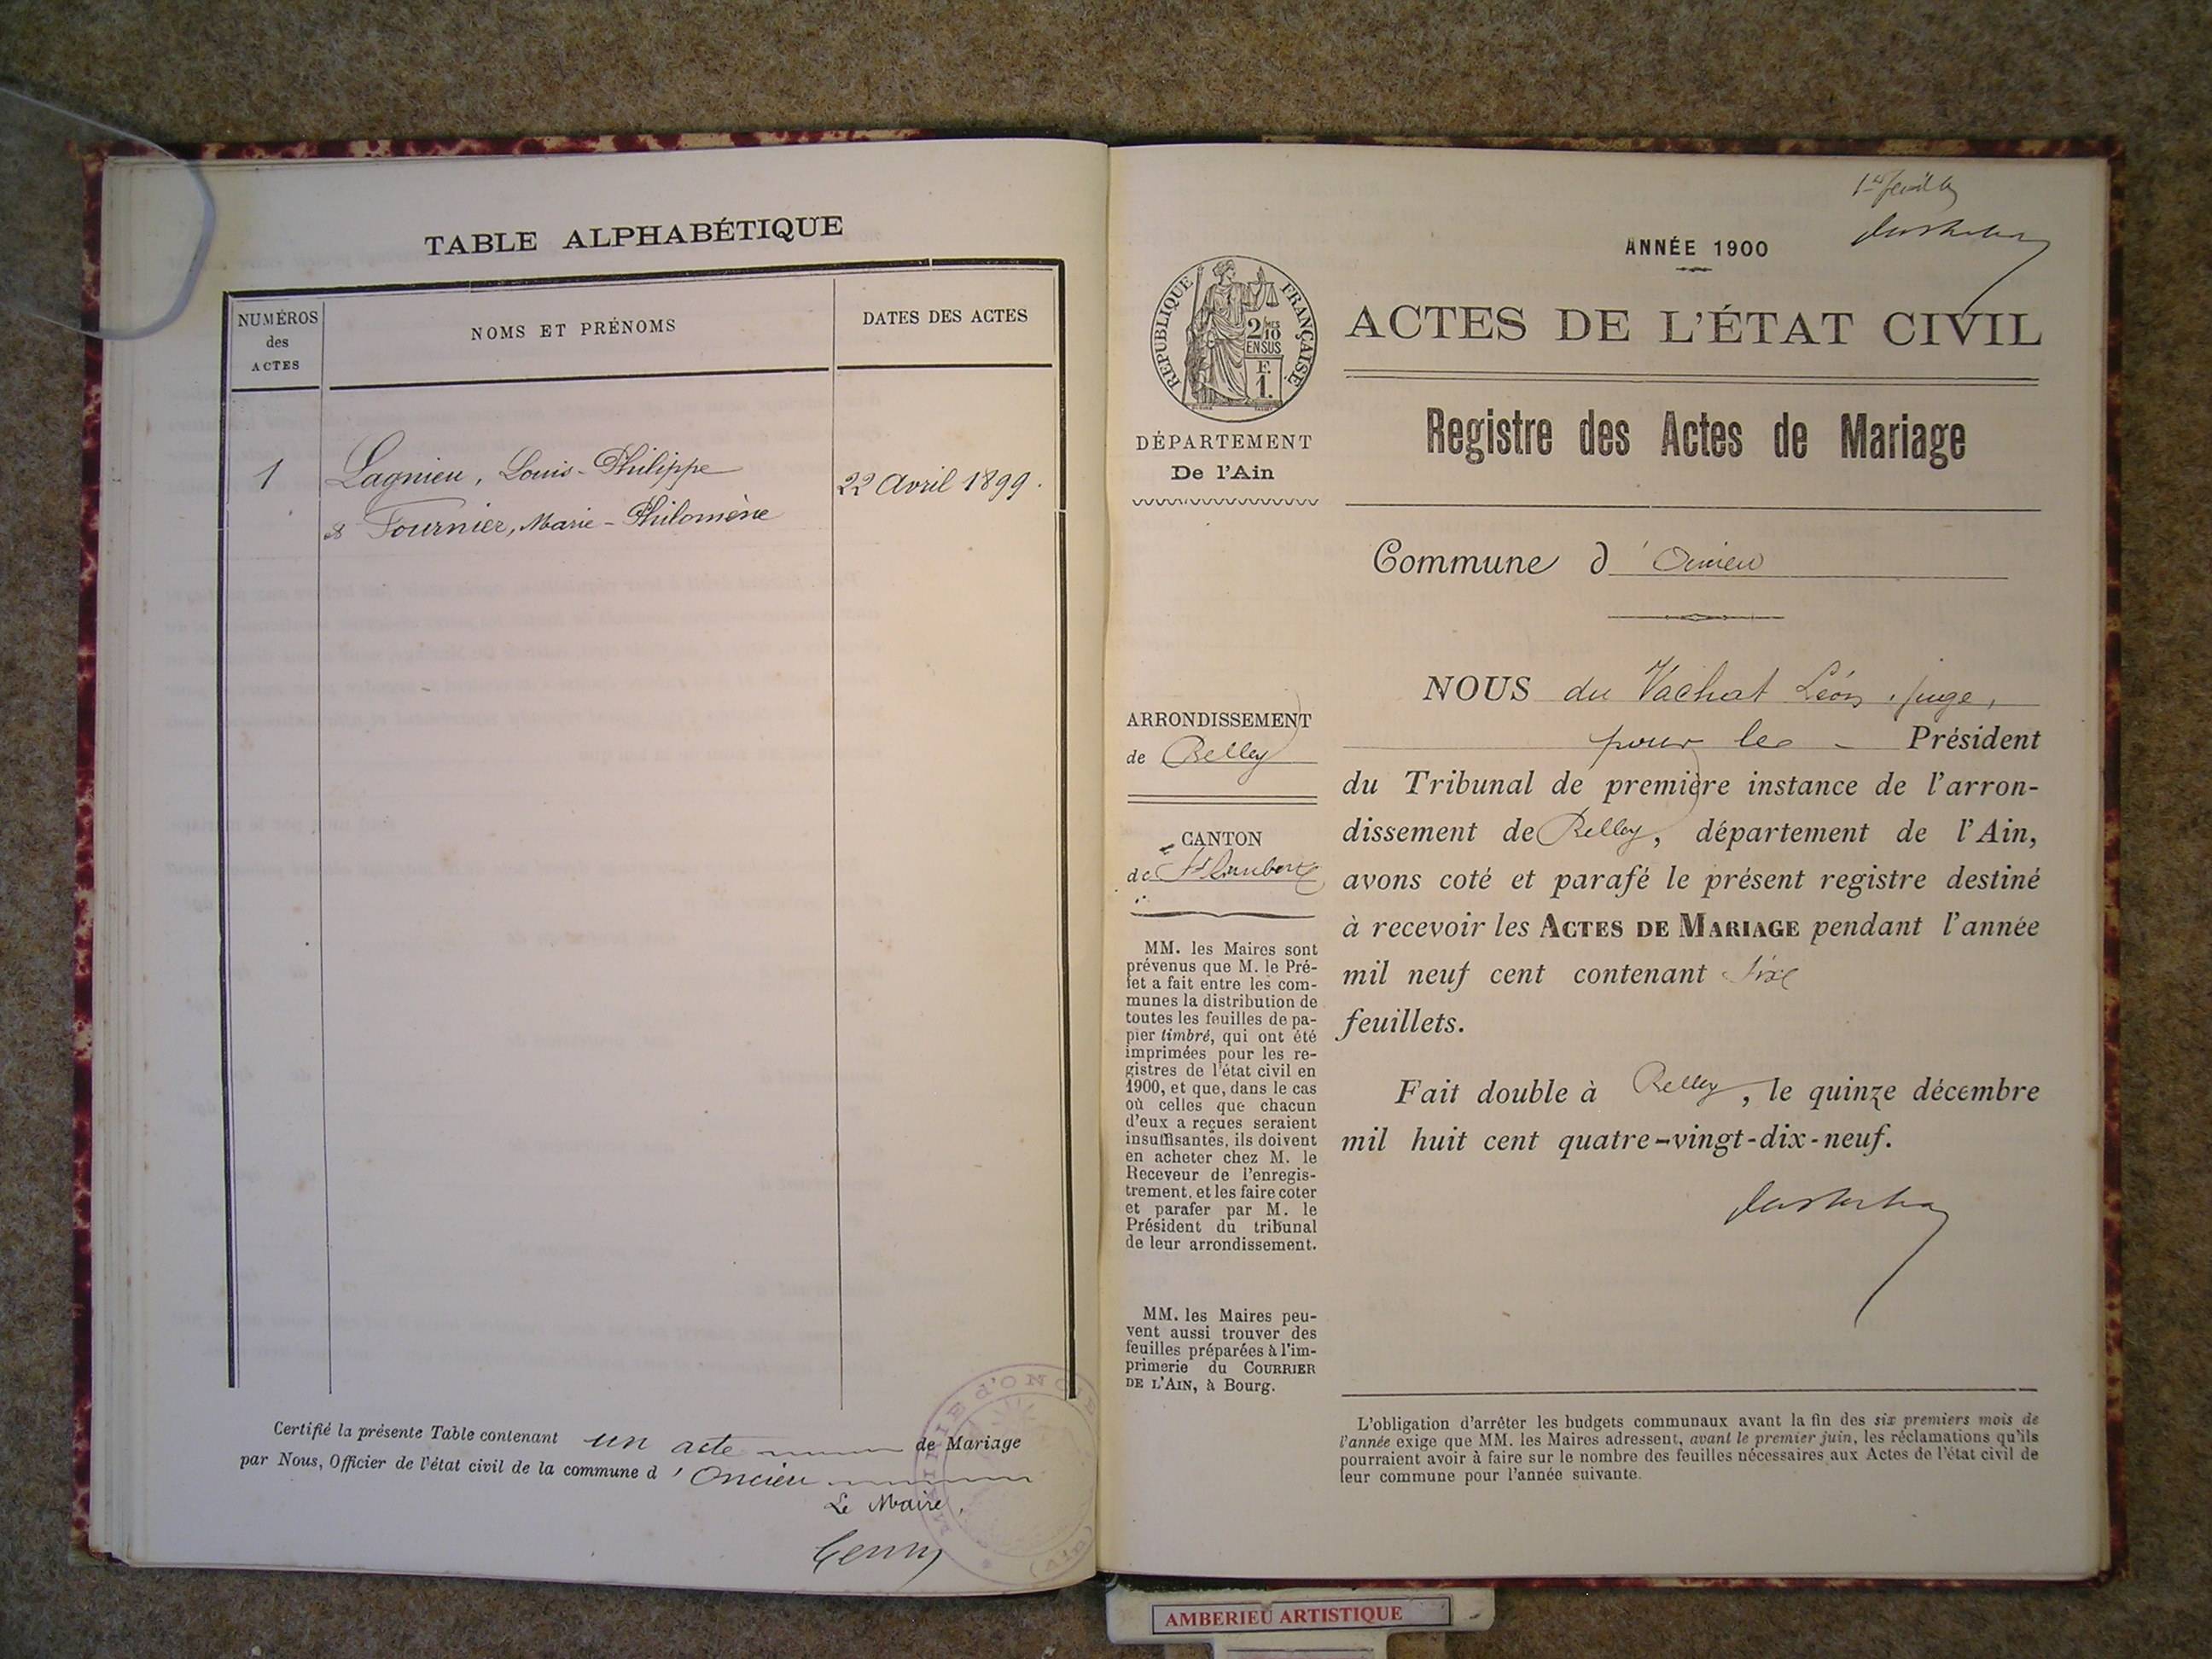 TABLE ALPHABÉTIQUE
NUMÉROS
des
ACTES
NOMS ET PRÉNOMS
DATES DES ACTES
1
Lagnieu, Louis-Philippe
& Fournier, Marie-Philomène
22 Avril 1899.
Certifié la présente Table contenant un acte de Mariage
par Nous, Officier de l'état civil de la commune d'Oncieu
Le Maire,
MAIRIE d'ONCIE
(AIN)
ANNÉE 1900
RÉPUBLIQUE FRANÇAISE
2/10
EN SUS
F.
1.
ACTES DE L'ÉTAT CIVIL
Registre des Actes de Mariage
DÉPARTEMENT
De l'Ain
Commune d'Oncieu
ARRONDISSEMENT
de Belley
CANTON
de St Rambert
MM. les Maires sont
prévenus que M. le Pré-
fet a fait entre les com-
munes la distribution de
toutes les feuilles de pa-
pier timbré, qui ont été
imprimées pour les re-
gistres de l'état civil en
1900, et que, dans le cas
où celles que chacun
d'eux a reçues seraient
insuffisantes, ils doivent
en acheter chez M. le
Receveur de l'enregis-
trement, et les faire coter
et parafer par M. le
Président du tribunal
de leur arrondissement.
MM. les Maires peu-
vent aussi trouver des
feuilles préparées à l'im-
primerie du COURRIER
DE L'AIN, à Bourg.
NOUS du Vachat Léon, juge,
pour le Président
du Tribunal de première instance de l'arron-
dissement de Belley, département de l'Ain,
avons coté et parafé le présent registre destiné
à recevoir les ACTES DE MARIAGE pendant l'année
mil neuf cent contenant six
feuillets.
Fait double à Belley, le quinze décembre
mil huit cent quatre-vingt-dix-neuf.
L'obligation d'arrêter les budgets communaux avant la fin des six premiers mois de
l'année exige que MM. les Maires adressent, avant le premier juin, les réclamations qu'ils
pourraient avoir à faire sur le nombre des feuilles nécessaires aux Actes de l'état civil de
leur commune pour l'année suivante.
AMBERIEU ARTISTIQUE